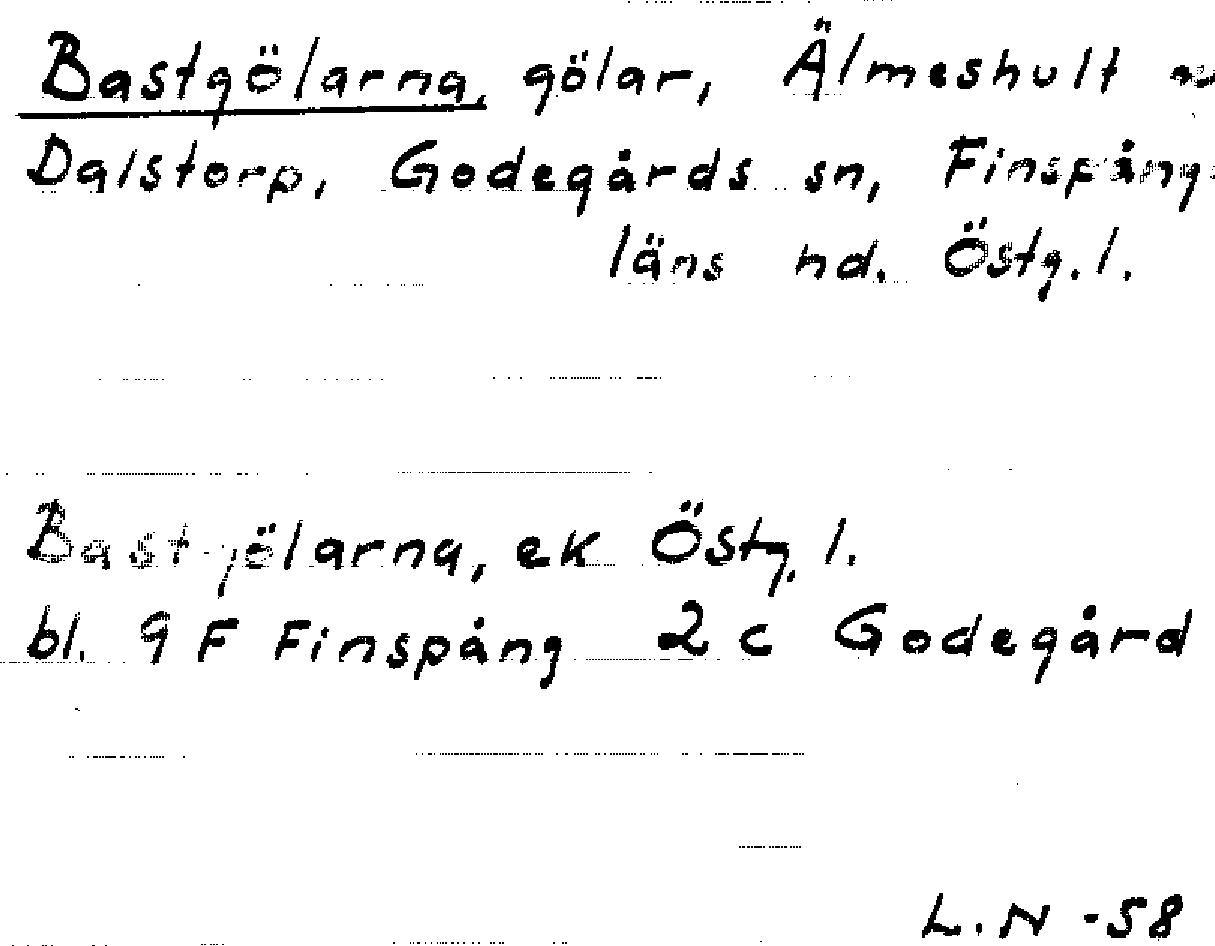 Bastgölarna, gölar, Älmeshult
Dalstorp, Godegårds sn, Finspångs
läns hd. Östg.l.
Bastgölarna, ek Östg.l.
bl. 9 F Finspång 2 c Godegård
L.N -58